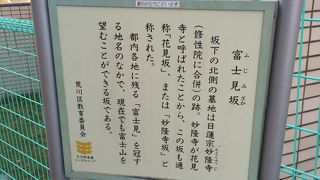 ありがとうございます
富士見坂
ふじみざか
坂下の北側の墓地は日蓮宗妙隆寺
(修性院に合併)の跡。妙隆寺が花見
寺と呼ばれたことから、この坂も通
称「花見坂」、または「妙隆寺坂」と
称された。
都内各地に残る「富士見」を冠す
る地名のなかで、現在でも富士山を
望むことができる坂である。
荒川区教育委員会